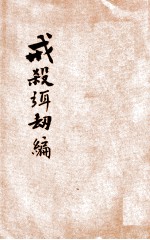 戒殺弭劫編